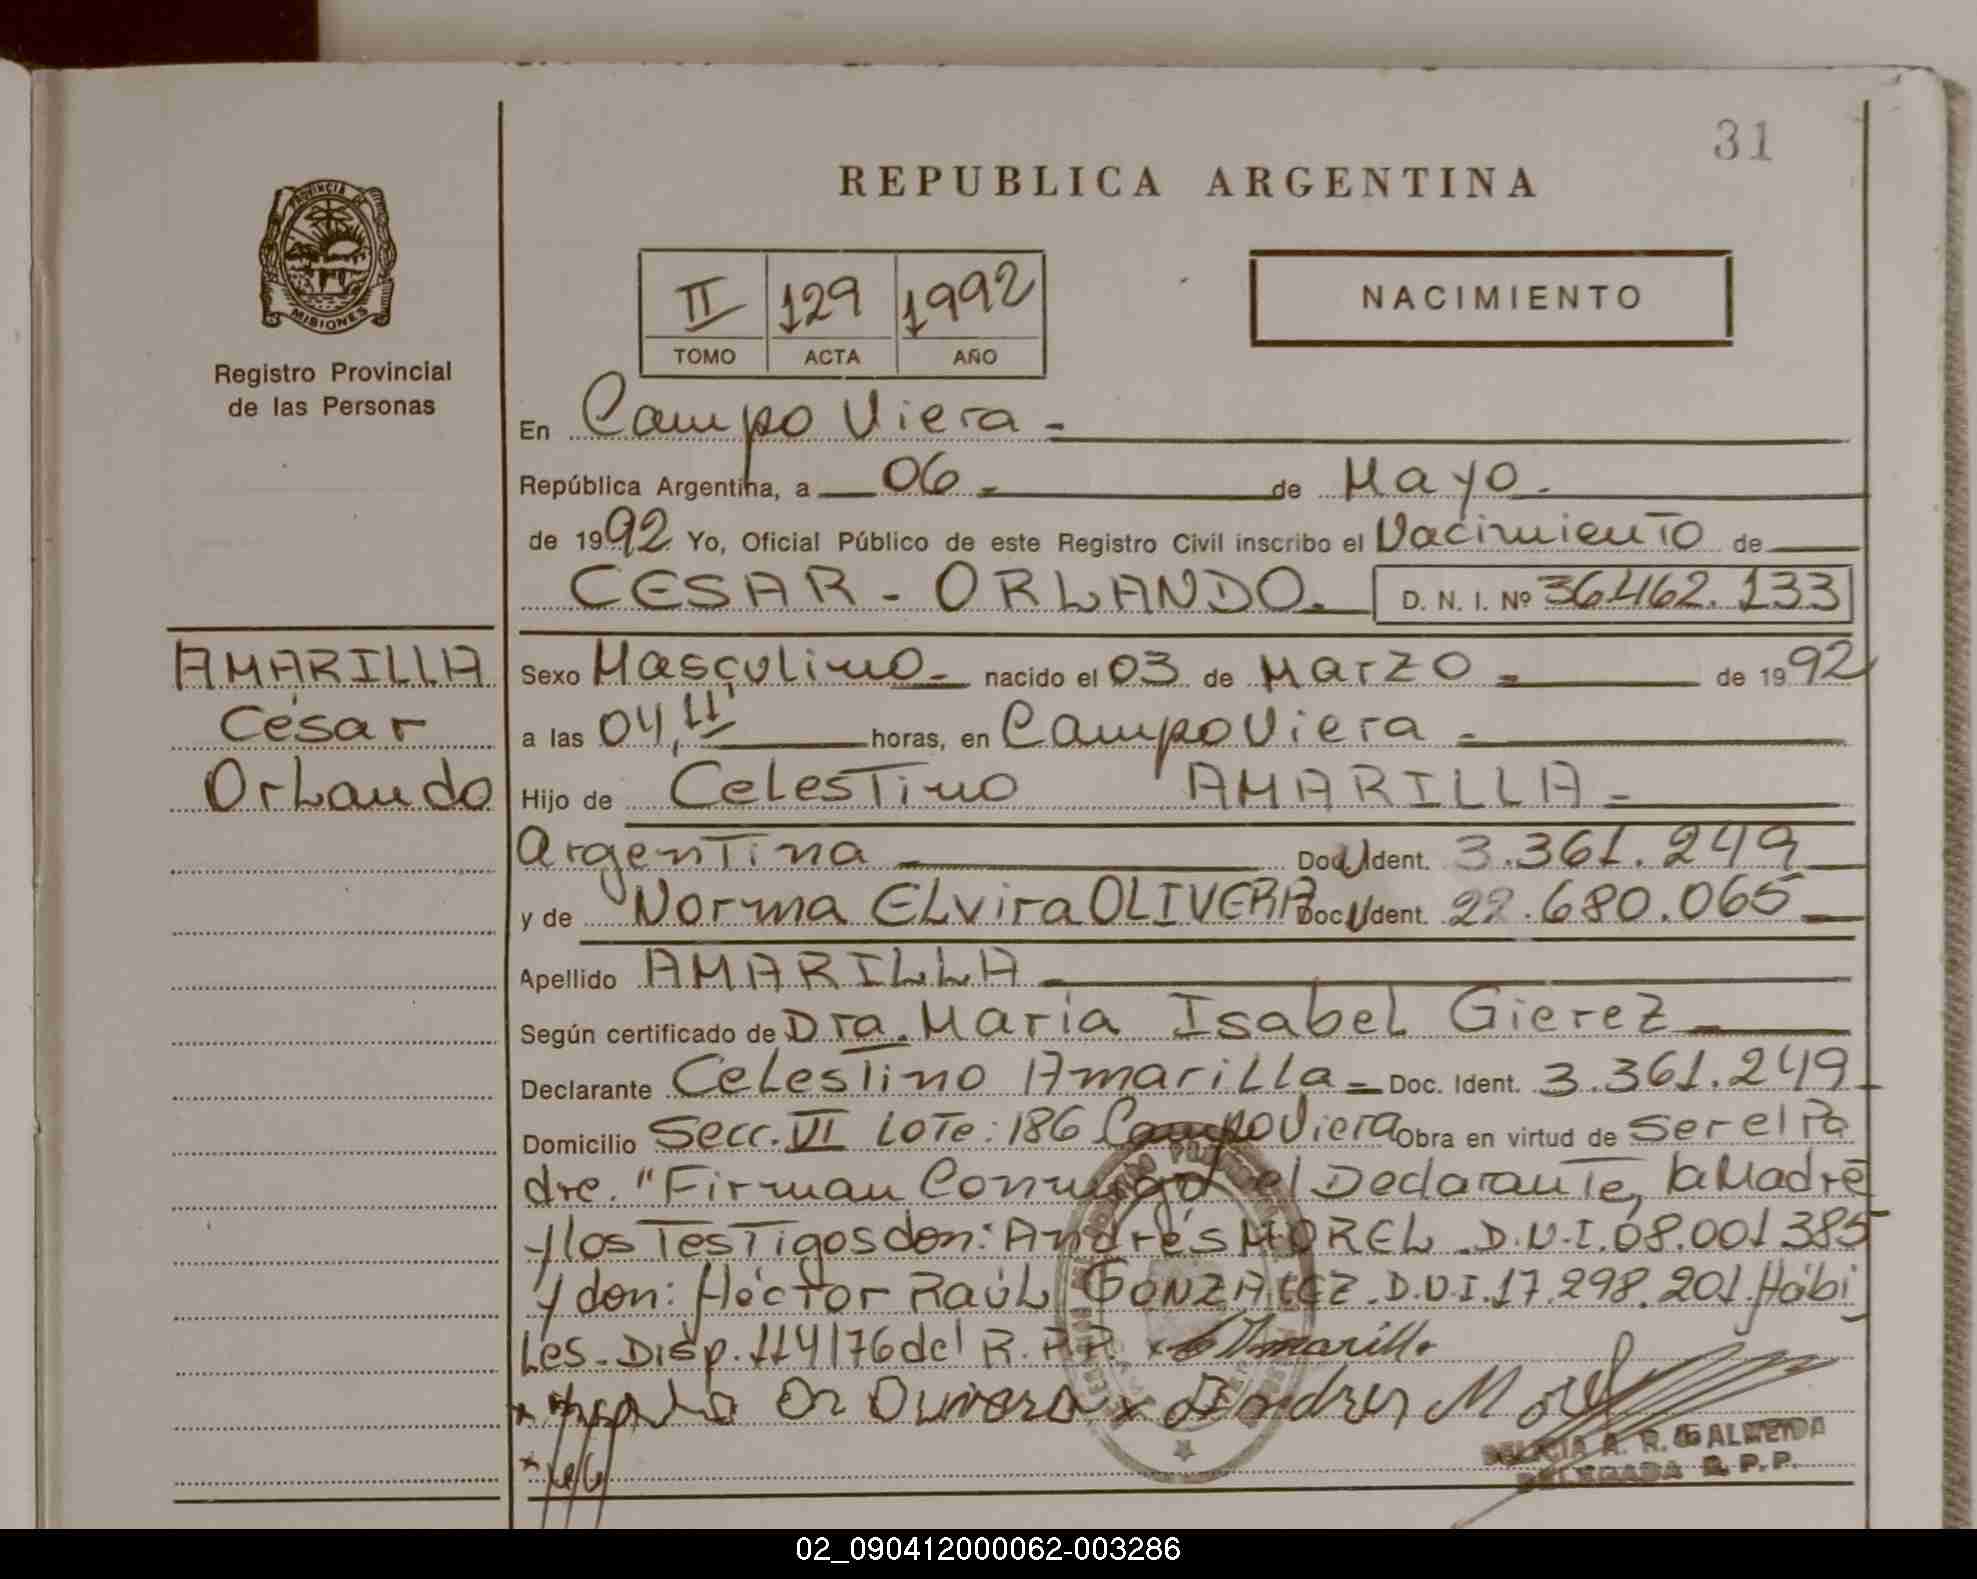 31
REPUBLICA ARGENTINA
PROVINCIA DE
MISIONES
Registro Provincial
de las Personas
II 129 1992
TOMO ACTA AÑO
NACIMIENTO
En Campo Viera -
República Argentina, a 06 - de Mayo.
de 1992. Yo, Oficial Público de este Registro Civil inscribo el Nacimiento de
CESAR - ORLANDO. D. N. I. Nº 36.462.133
AMARILLA
César
Orlando
Sexo Masculino - nacido el 03 de Marzo - de 1992
a las 04,11' horas, en Campo Viera -
Hijo de Celestino AMARILLA -
Argentina Doc. Ident. 3.361.249
y de Norma Elvira OLIVERA Doc. Ident. 22.680.065
Apellido AMARILLA
Según certificado de Dra. María Isabel Gierez
Declarante Celestino Amarilla - Doc. Ident. 3.361.249
Domicilio Secc. VI Lote: 186 Campo Viera Obra en virtud de ser el Pa
dre. "Firman Conmigo el Declarante, la Madre
y los Testigos don: Andrés MOREL D.N.I. 08.001385
y don: Héctor Raúl GONZALEZ. D.N.I. 17.298.201. Hábi
Les. Disp. 114/76 del R.P.P. x C Amarilla
x Andres Morel
A. R. G ALMEIDA
DELEGADA R. P. P.
02_090412000062-003286